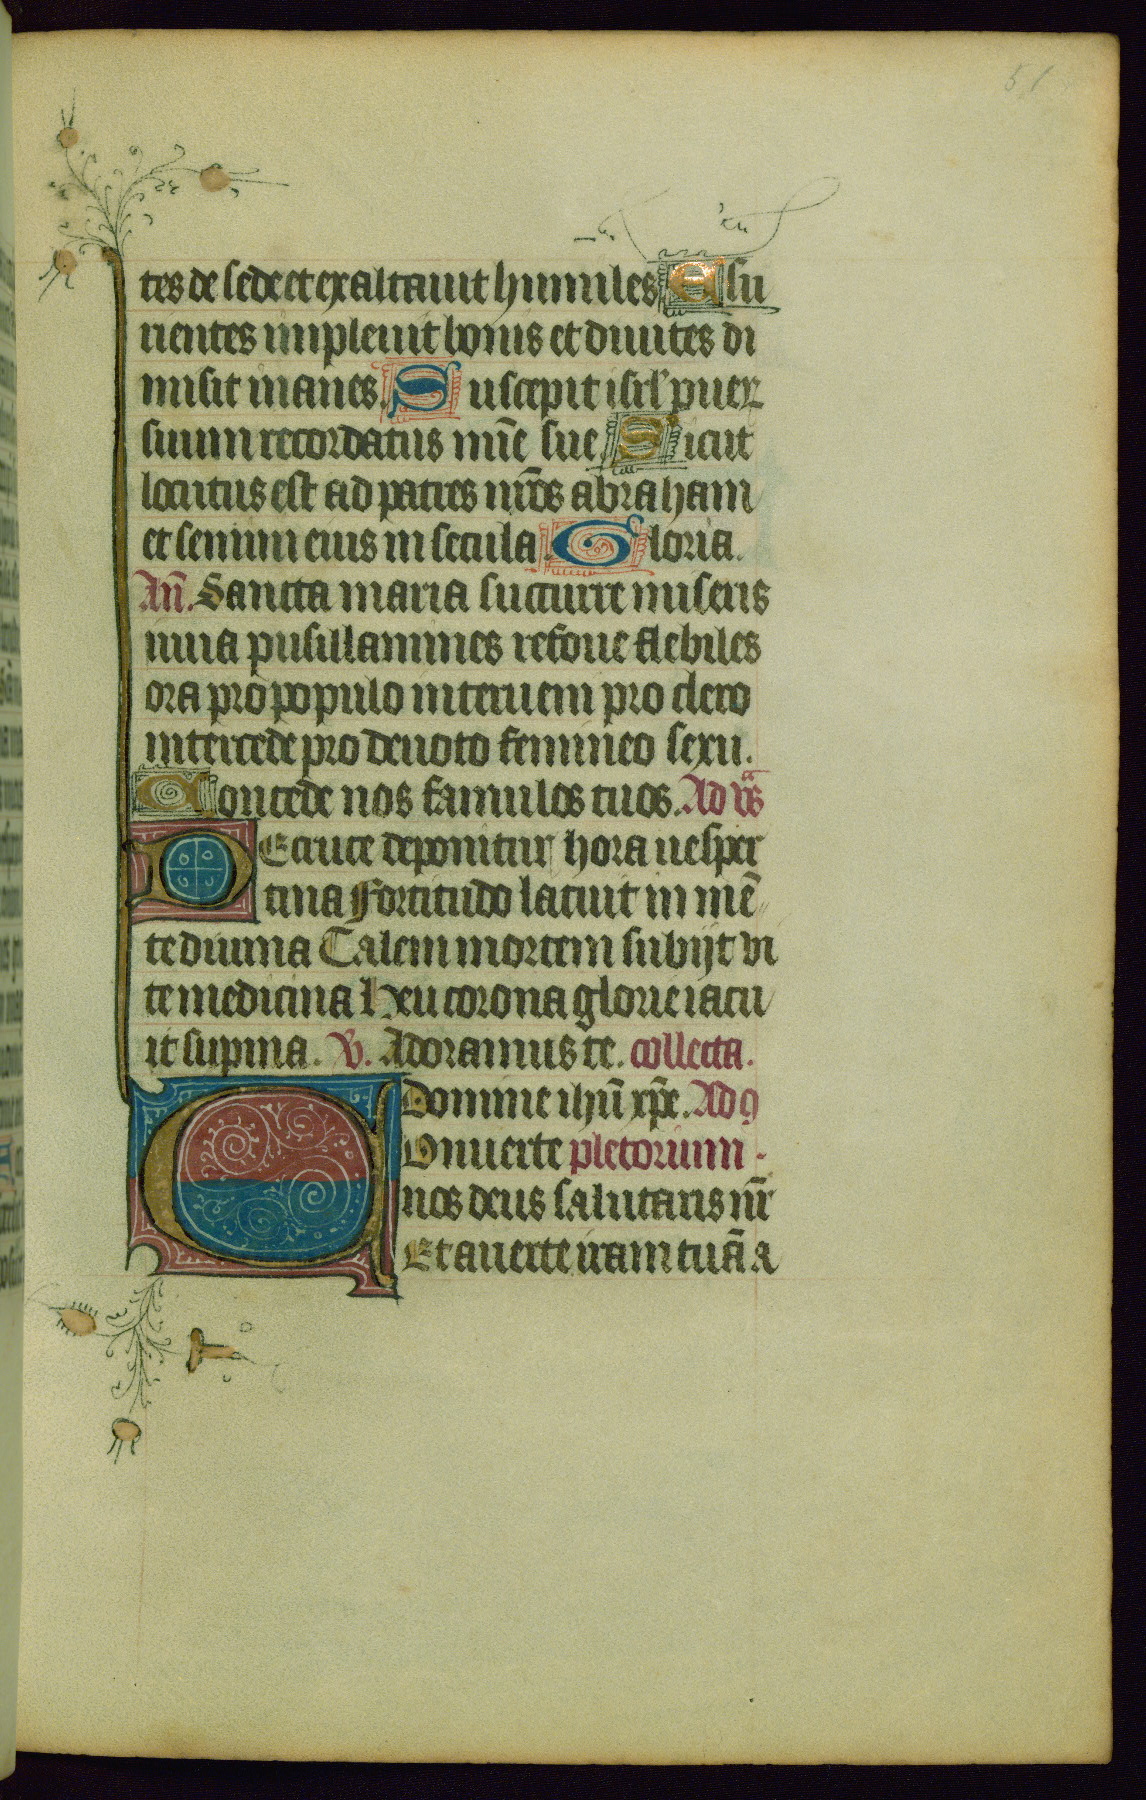 51
tes de sede et exaltauit humiles Esu
rientes impleuit bonis et diuites di
misit inanes. Suscepit isrl' puer
suum recordatus mīe sue. Sicut
locutus est ad patres nr̄os abraham
et semini eius in secula. Gloria.
An̄. Sancta maria succurre miseris
iuua pusillanimes refoue flebiles
ora pro populo interueni pro clero
intercede pro deuoto femineo sexu.
Concede nos famulos tuos. Ad vs̄
DE cruce deponitur hora uesper
tina Fortitudo latuit in mē
te diuina Talem mortem subijt vi
te medicina Heu corona glorie iacu
it supina. V. Adoramus te. collecta.
Domine ihū xp̄e. Ad 9
Onuerte pletorium.
nos deus salutaris nr̄
Et auerte iram tuā a